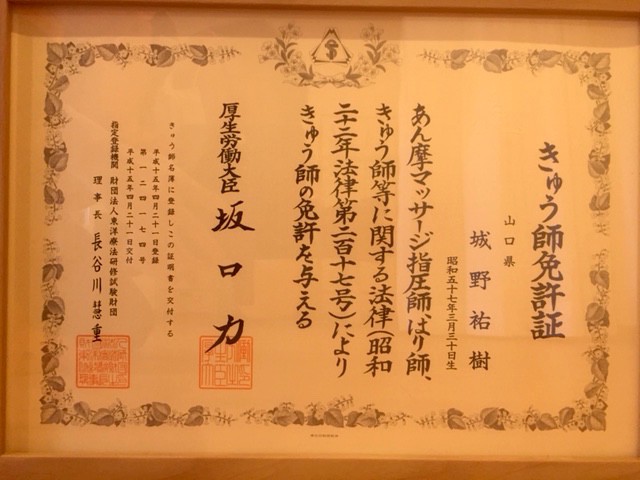 きゅう師免許証
山口県
城野祐樹
昭和五十七年三月三十日生
あん摩マッサージ指圧師、はり師、
きゅう師等に関する法律（昭和
二十二年法律第二百十七号）により
きゅう師の免許を与える
厚生労働大臣 坂口力
きゅう師名簿に登録しこの証明書を交付する
平成十五年四月二十一日登録
第一二四一七四号
平成十五年四月二十一日交付
指定登録機関 財団法人東洋療法研修試験財団
理事長 長谷川慧重